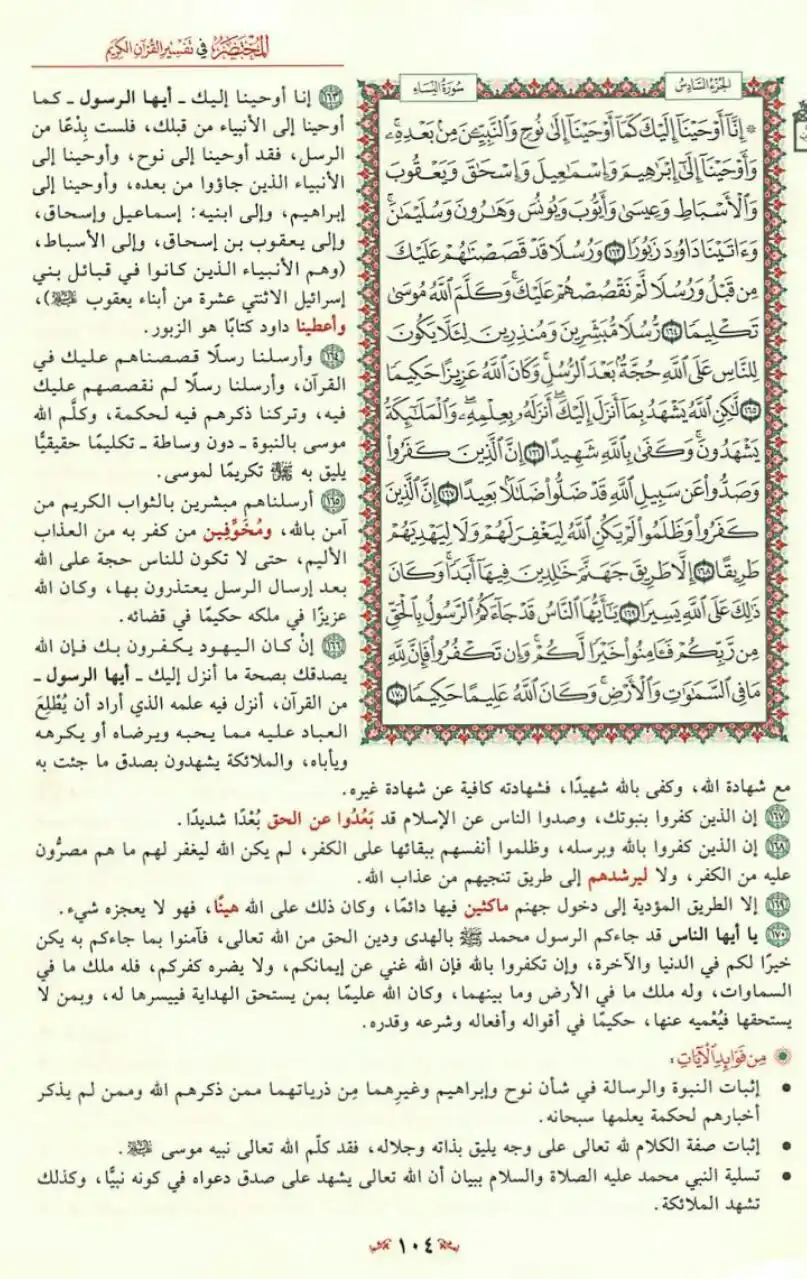 المختصر في تفسير القرآن الكريم
الجزء السادس
سورة النساء
۞ إِنَّآ أَوْحَيْنَآ إِلَيْكَ كَمَآ أَوْحَيْنَآ إِلَىٰ نُوحٍ وَٱلنَّبِيِّـۧنَ مِنۢ بَعْدِهِۦۚ
وَأَوْحَيْنَآ إِلَىٰٓ إِبْرَٰهِيمَ وَإِسْمَٰعِيلَ وَإِسْحَٰقَ وَيَعْقُوبَ
وَٱلْأَسْبَاطِ وَعِيسَىٰ وَأَيُّوبَ وَيُونُسَ وَهَٰرُونَ وَسُلَيْمَٰنَۚ
وَءَاتَيْنَا دَاوُۥدَ زَبُورًا ١٦٣ وَرُسُلًا قَدْ قَصَصْنَٰهُمْ عَلَيْكَ
مِن قَبْلُ وَرُسُلًا لَّمْ نَقْصُصْهُمْ عَلَيْكَۚ وَكَلَّمَ ٱللَّهُ مُوسَىٰ
تَكْلِيمًا ١٦٤ رُّسُلًا مُّبَشِّرِينَ وَمُنذِرِينَ لِئَلَّا يَكُونَ
لِلنَّاسِ عَلَى ٱللَّهِ حُجَّةٌۢ بَعْدَ ٱلرُّسُلِۚ وَكَانَ ٱللَّهُ عَزِيزًا حَكِيمًا
١٦٥ لَّٰكِنِ ٱللَّهُ يَشْهَدُ بِمَآ أَنزَلَ إِلَيْكَۖ أَنزَلَهُۥ بِعِلْمِهِۦۖ وَٱلْمَلَٰٓئِكَةُ
يَشْهَدُونَۚ وَكَفَىٰ بِٱللَّهِ شَهِيدًا ١٦٦ إِنَّ ٱلَّذِينَ كَفَرُوا۟
وَصَدُّوا۟ عَن سَبِيلِ ٱللَّهِ قَدْ ضَلُّوا۟ ضَلَٰلًۢا بَعِيدًا ١٦٧ إِنَّ ٱلَّذِينَ
كَفَرُوا۟ وَظَلَمُوا۟ لَمْ يَكُنِ ٱللَّهُ لِيَغْفِرَ لَهُمْ وَلَا لِيَهْدِيَهُمْ
طَرِيقًا ١٦٨ إِلَّا طَرِيقَ جَهَنَّمَ خَٰلِدِينَ فِيهَآ أَبَدًاۚ وَكَانَ
ذَٰلِكَ عَلَى ٱللَّهِ يَسِيرًا ١٦٩ يَٰٓأَيُّهَا ٱلنَّاسُ قَدْ جَآءَكُمُ ٱلرَّسُولُ بِٱلْحَقِّ
مِن رَّبِّكُمْ فَـَٔامِنُوا۟ خَيْرًا لَّكُمْۚ وَإِن تَكْفُرُوا۟ فَإِنَّ لِلَّهِ
مَا فِى ٱلسَّمَٰوَٰتِ وَٱلْأَرْضِۚ وَكَانَ ٱللَّهُ عَلِيمًا حَكِيمًا ١٧٠
١٦٣ إنا أوحينا إليك ـ أيها الرسول ـ كما
أوحينا إلى الأنبياء من قبلك، فلست بِدْعًا من
الرسل، فقد أوحينا إلى نوح، وأوحينا إلى
الأنبياء الذين جاؤوا من بعده، وأوحينا إلى
إبراهيم، وإلى ابنيه: إسماعيل وإسحاق،
وإلى يعقوب بن إسحاق، وإلى الأسباط،
(وهم الأنبياء الذين كانوا في قبائل بني
إسرائيل الاثنتي عشرة من أبناء يعقوب ﵇)،
وأعطينا داود كتابًا هو الزبور.
١٦٤ وأرسلنا رسلًا قصصناهم عليك في
القرآن، وأرسلنا رسلًا لم نقصصهم عليك
فيه، وتركنا ذكرهم فيه لحكمة، وكلَّم الله
موسى بالنبوة ـ دون وساطة ـ تكليمًا حقيقيًّا
يليق به ﷻ تكريمًا لموسى.
١٦٥ أرسلناهم مبشرين بالثواب الكريم من
آمن بالله، ومُخَوِّفِين من كفر به من العذاب
الأليم، حتى لا تكون للناس حجة على الله
بعد إرسال الرسل يعتذرون بها، وكان الله
عزيزًا في ملكه حكيمًا في قضائه.
١٦٦ إنْ كان اليهود يكفرون بك فإن الله
يصدقك بصحة ما أنزل إليك ـ أيها الرسول ـ
من القرآن، أنزل فيه علمه الذي أراد أن يُطْلِعَ
العباد عليه مما يحبه ويرضاه أو يكرهه
ويأباه، والملائكة يشهدون بصدق ما جئت به
مع شهادة الله، وكفى بالله شهيدًا، فشهادته كافية عن شهادة غيره.
١٦٧ إن الذين كفروا بنبوتك، وصدوا الناس عن الإسلام قد بَعُدُوا عن الحق بُعْدًا شديدًا.
١٦٨ إن الذين كفروا بالله وبرسله، وظلموا أنفسهم ببقائها على الكفر، لم يكن الله ليغفر لهم ما هم مصرُّون
عليه من الكفر، ولا ليرشدهم إلى طريق تنجيهم من عذاب الله.
١٦٩ إلا الطريق المؤدية إلى دخول جهنم ماكثين فيها دائمًا، وكان ذلك على الله هينًا، فهو لا يعجزه شيء.
١٧٠ يا أيها الناس قد جاءكم الرسول محمد ﷺ بالهدى ودين الحق من الله تعالى، فآمنوا بما جاءكم به يكن
خيرًا لكم في الدنيا والآخرة، وإن تكفروا بالله فإن الله غني عن إيمانكم، ولا يضره كفركم، فله ملك ما في
السماوات، وله ملك ما في الأرض وما بينهما، وكان الله عليمًا بمن يستحق الهداية فييسرها له، وبمن لا
يستحقها فيُعْميه عنها، حكيمًا في أقواله وأفعاله وشرعه وقدره.
من فوائد الآيات:
• إثبات النبوة والرسالة في شأن نوح وإبراهيم وغيرِهما مِن ذرياتهما ممن ذكرهم الله وممن لم يذكر
أخبارهم لحكمة يعلمها سبحانه.
• إثبات صفة الكلام لله تعالى على وجه يليق بذاته وجلاله، فقد كلّم الله تعالى نبيه موسى ﵇.
• تسلية النبي محمد عليه الصلاة والسلام ببيان أن الله تعالى يشهد على صدق دعواه في كونه نبيًّا، وكذلك
تشهد الملائكة.
١٠٤